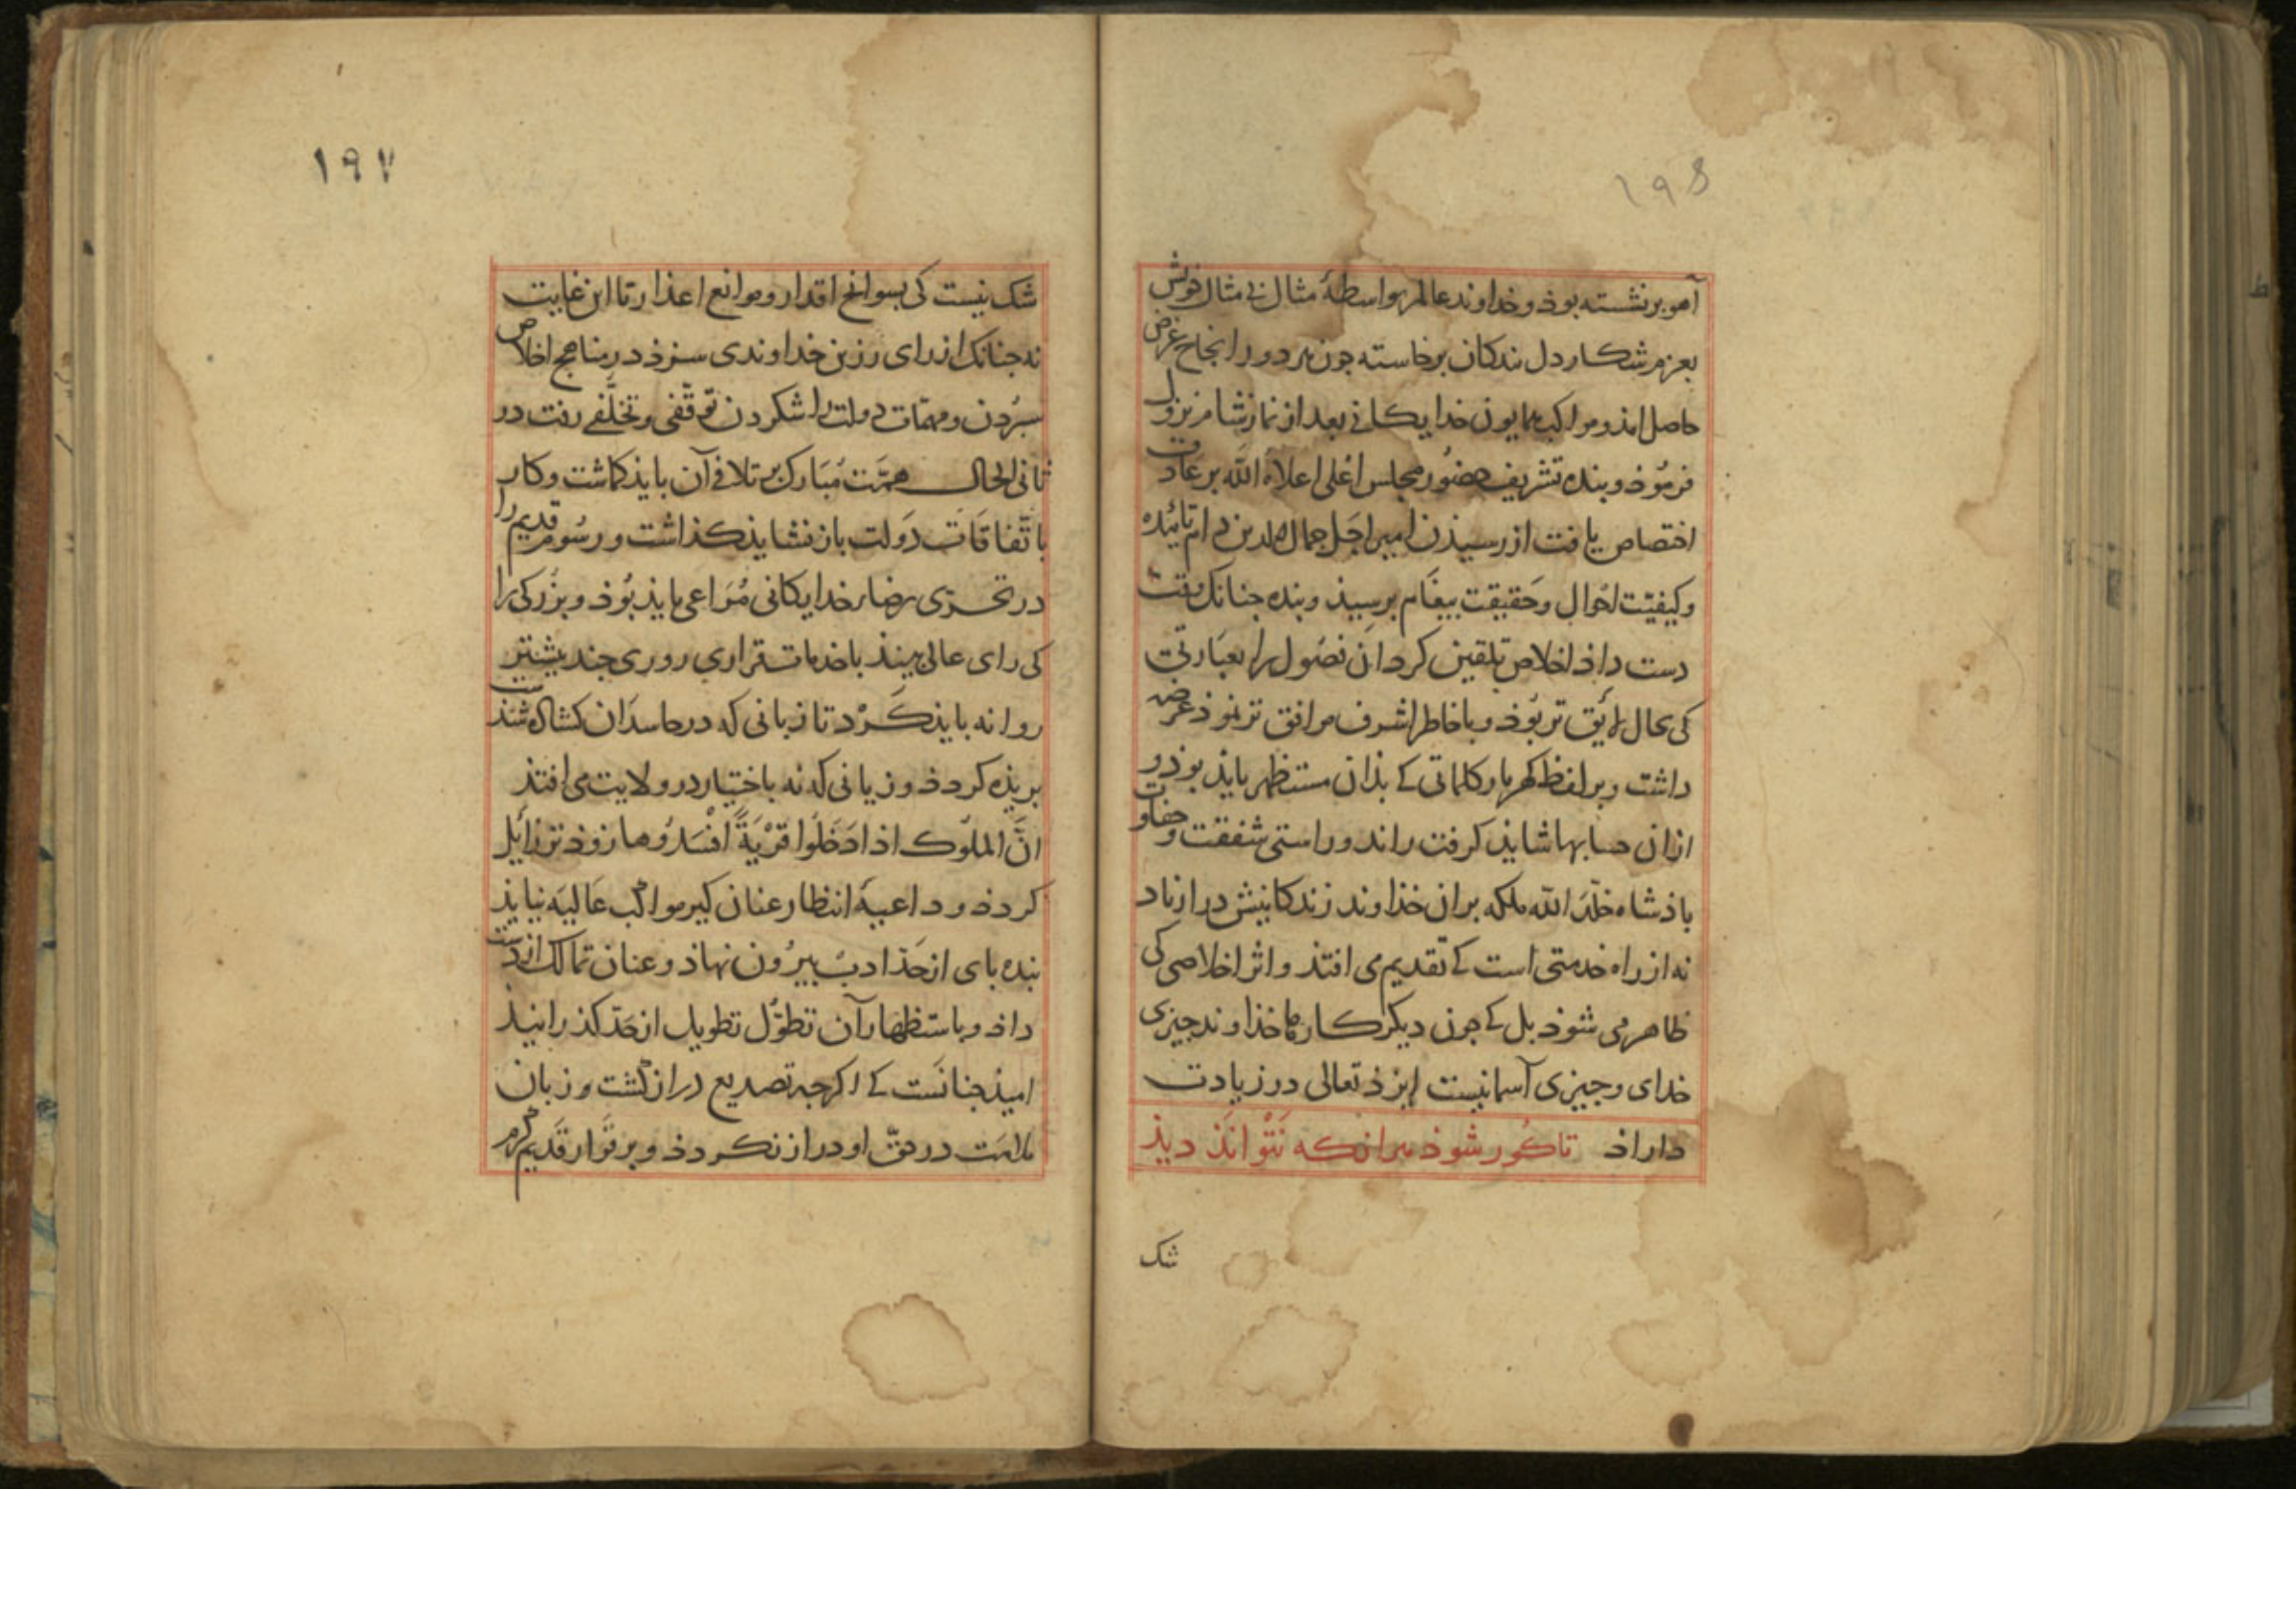 ۱۹۶
آهو برنشسته بوذ و خداوند عالم بواسطهٔ مثال بی مثال خویش
بعزم شکار دل بندکان برخاسته جون هر دو را انجاح غرض
حاصل امذ و مواکب همایون خدایکانی بعد از نماز شام نزول
فرموذ و بنده تشریف حضور مجلس اعلی اعلاه الله بر عادت
اختصاص یافت از رسیذن امیر اجل جمال الدین دام تاییده
و کیفیت احوال و حقیقت بیغام برسیذ و بنده جنانک وقت
دست داذ اخلاص تلقین کرد ان فصول را بعبارتی
کی بحال لایق تر بوذ و با خاطر اشرف موافق تر نموذ عرضه
داشت و بر لفظ کهربار کلماتی کے بذان مستظهر بایذ بوذ و
ازان حسابها شایذ کرفت راند و راستی شفقت و حفاوت
باذشاه خلد الله ملکه بران خذاوند زندکانیش دراز باد
نه از راه خدمتی است کے تقدیم می افتذ و اثر اخلاصی کی
ظاهر می شوذ بل کے جون دیکر کارها خذاوند جیزی
خدای و جیزی آسمانیست ایزذ تعالی در زیادت
داراذ تا کور شوذ هرانکه نتوانذ دیذ
شک
۱۹۷
شک نیست کی بسوانح اقدار و موانع اعذار تا این غایت
نه جنانک از رای رزین خداوندی سزذ در مناهج اخلاص
سبردن و مهمات دولت را شکردن توقفی و تخلفی رفت در
ثانی الحال همت مبارک بر تلافی آن بایذ کماشت و کار
باتفاقات دولت باز نشایذ کذاشت و رسوم قدیم را
در تحری رضاء خدایکانی مراعی بایذ بوذ و بزرکی را
کی رای عالی بینذ با خدمات قراری روزی جند بیشتر
روانه بایذ کرد تا زبانی که در حاسدان کشاده شدست
بریذه کردذ و زیانی که نه باختیار در ولایت می افتذ
ان الملوک اذا دخلوا قریة افسدوها زوذتر زائل
کردذ و داعیهٔ انتظار عنان کیر مواکب عالیه نیایذ
بنده بای از حد ادب بیرون نهاذ و عنان تمالک از دست
داذ و باستظهار آن تطول تطویل از حد کذرانیذ
امیذ جنانست کے اکرجه تصدیع دراز کشت و زبان
ملامت در حق او دراز نکردذ و بر قرار قدیم کرم